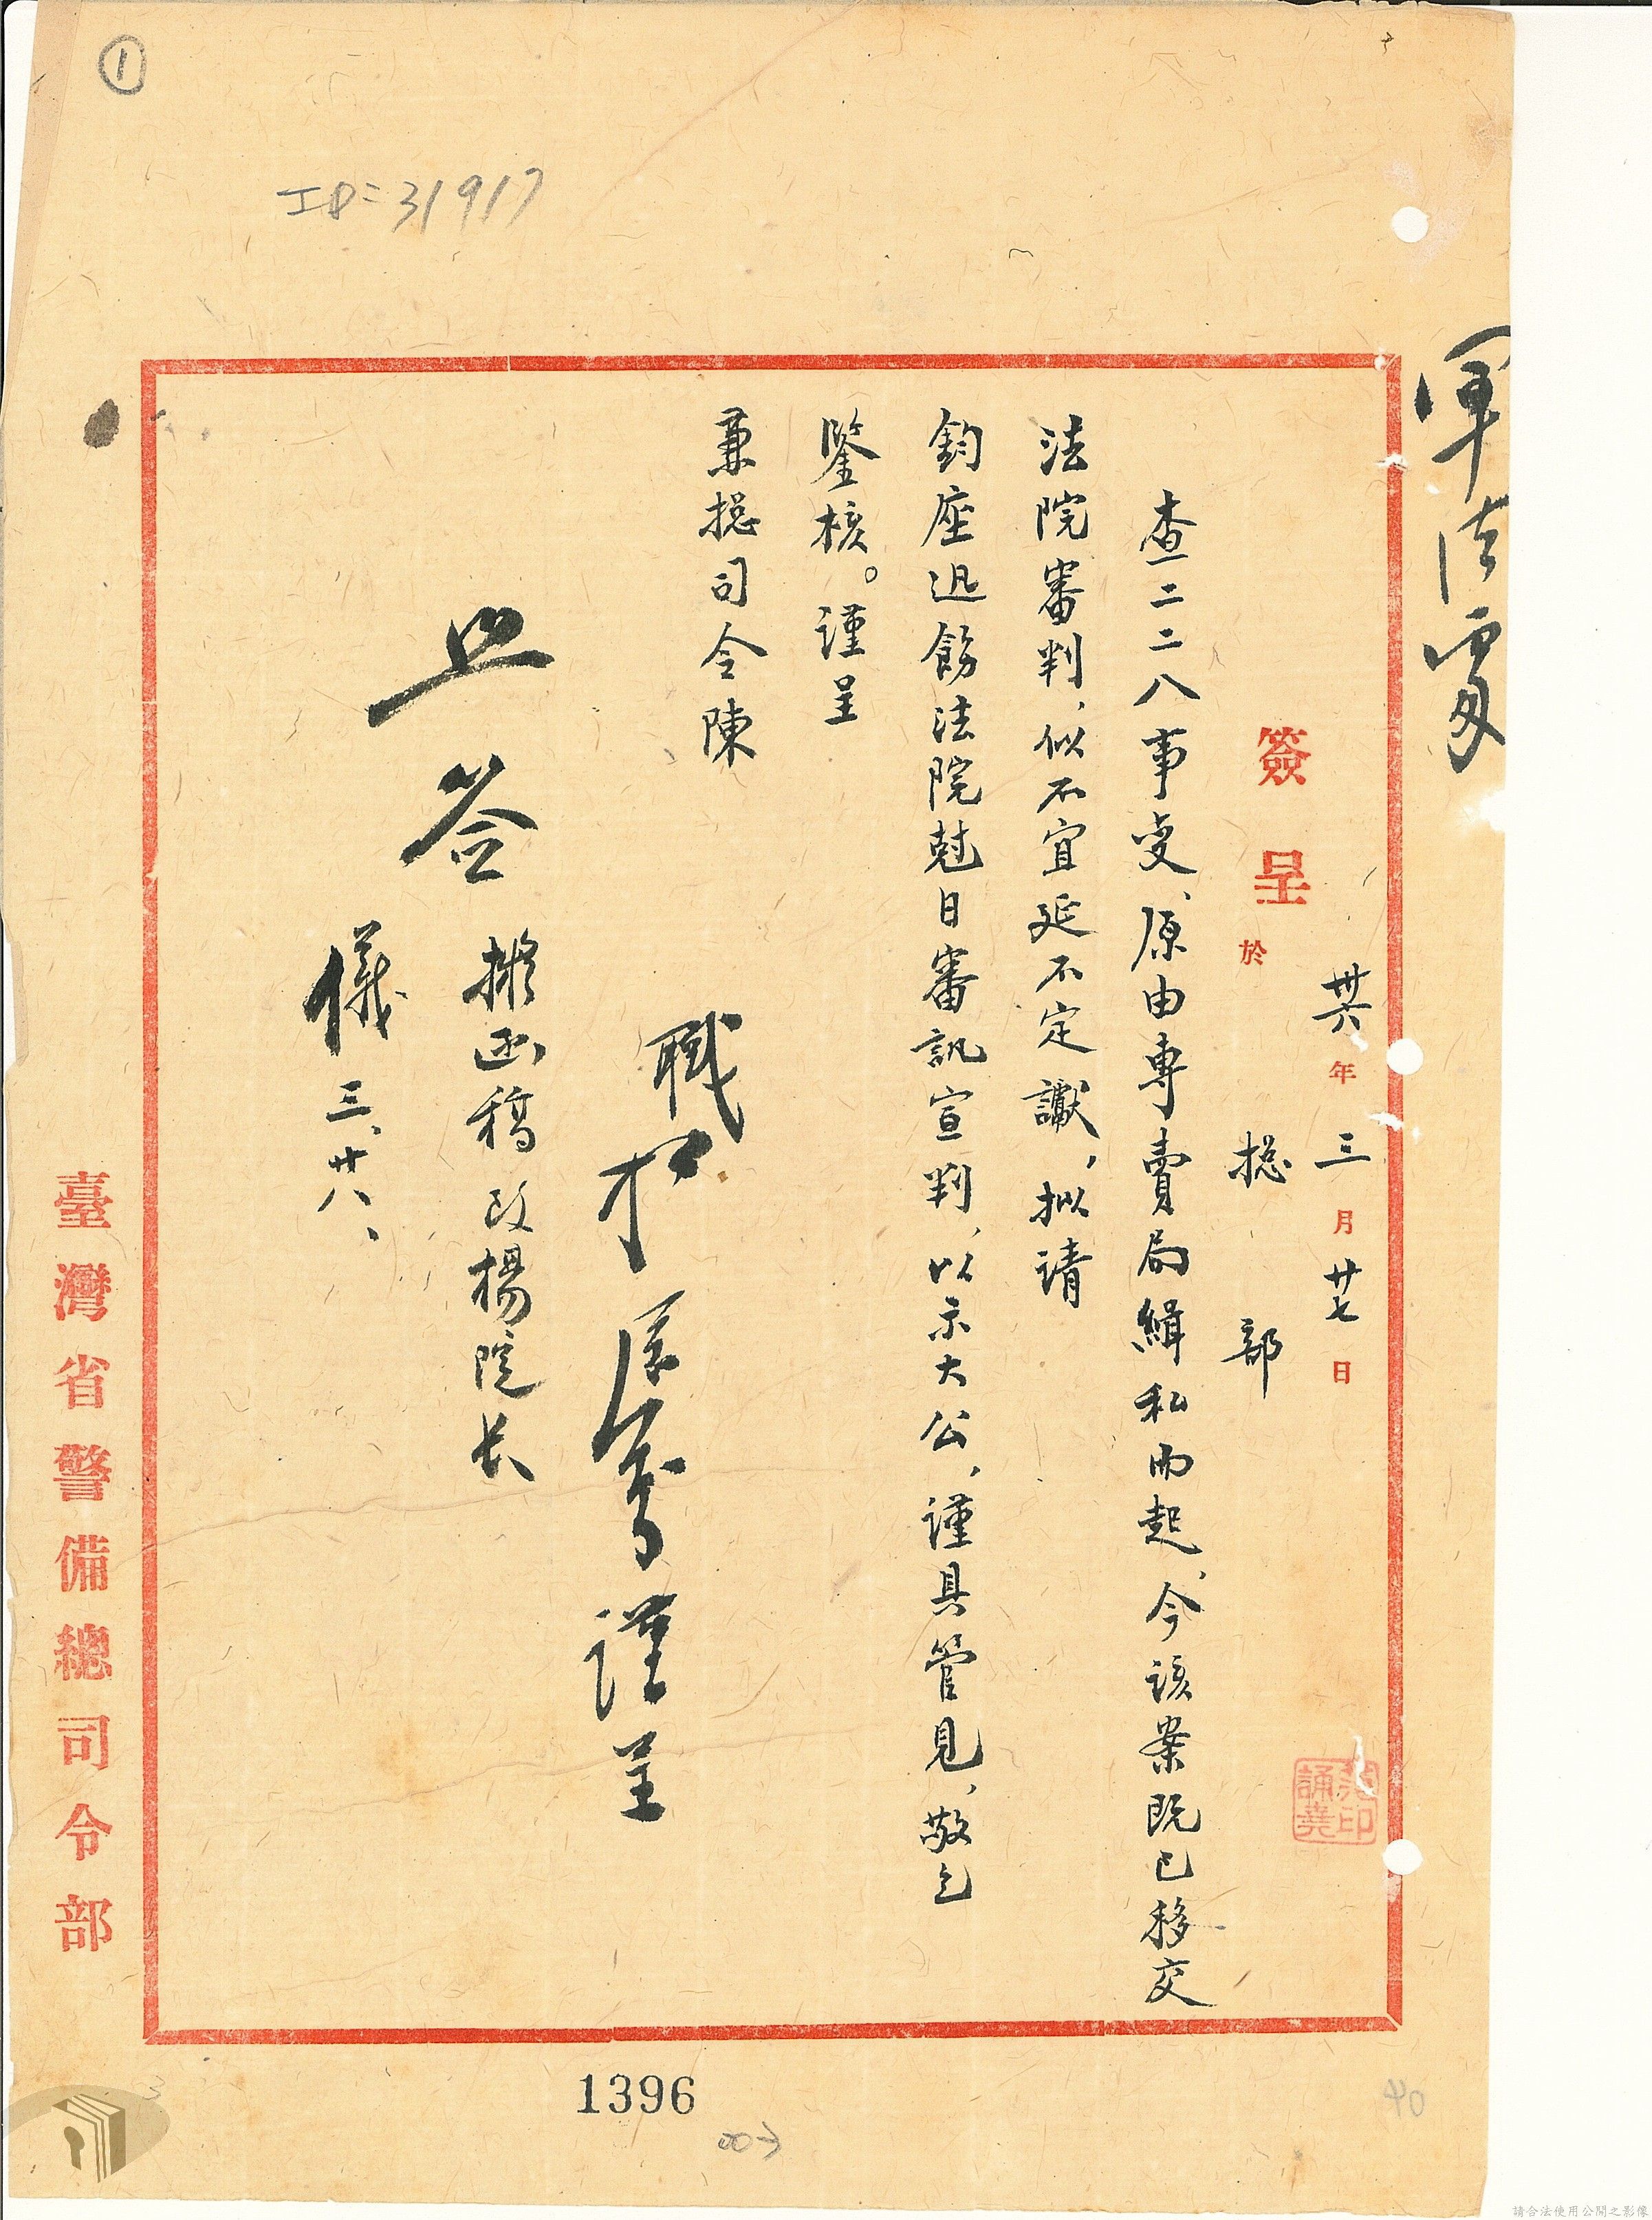 軍法處
卅六年三月廿七日
簽呈於總部
查二二八事变、原由專賣局緝私而起、今該案既已移交
法院審判、似不宜延不定讞，拟请
鈞座迅飭法院尅日審訊宣判、以示大公、謹具管見、敬乞
鑒核。謹呈
兼總司令陳
職柯遠芬謹呈
照签
擬函稿致楊院长
儀 三、廿八、
臺灣省警備總司令部
范印誦堯
1
ID=31917
1396
40
請合法使用公開之影像